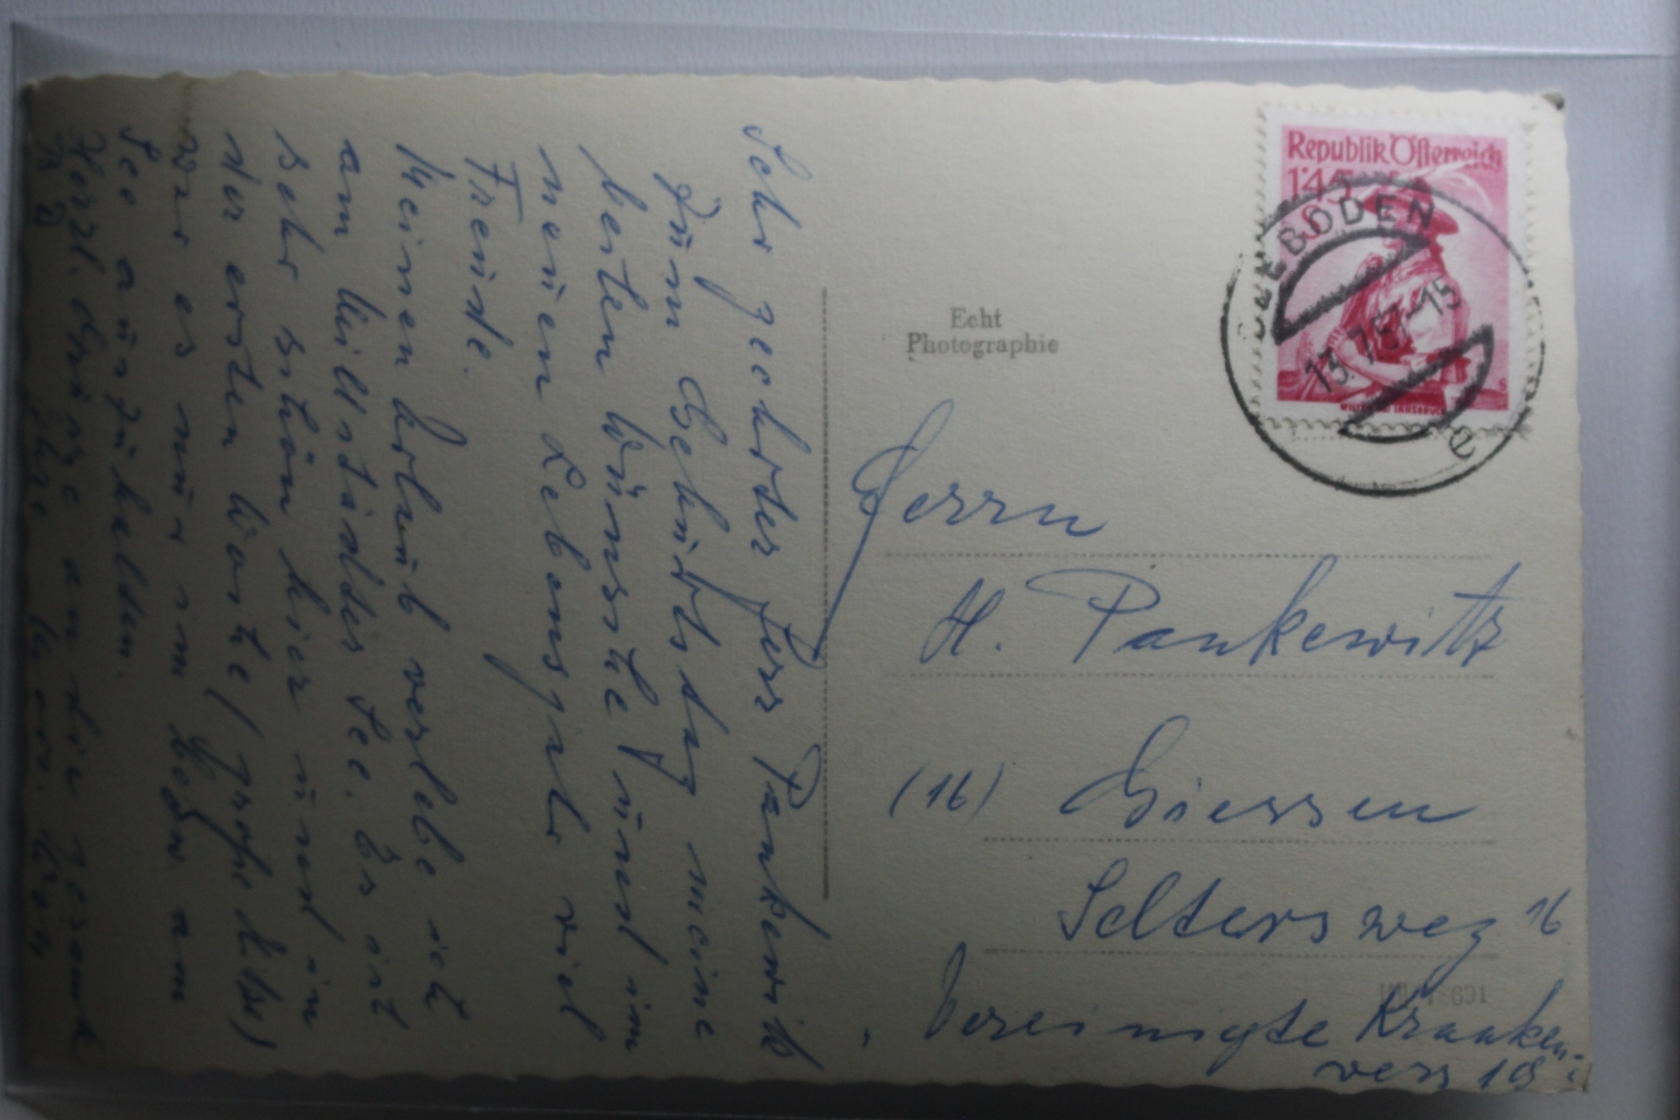 Sehr geehrter Herr Pankewitz
Zum Geburtstag meine
besten Wünsche und im
neuen Lebensjahr viel
Freude.
Meinen Urlaub verlebe ich
am Millstädter See. Es ist
sehr schön hier und in
der ersten Woche (große Hitze)
war es nur im bzw. am
See auszuhalten.
Herzl. Grüße an die gesamte
B D Ihre
Echt
Photographie
Republik Österreich
1.45
S
SEEBODEN
13.7.57-15
e
Herrn
H. Pankewitz
(16) Giessen
Seltersweg 16
Vereinigte Kranken-
vers